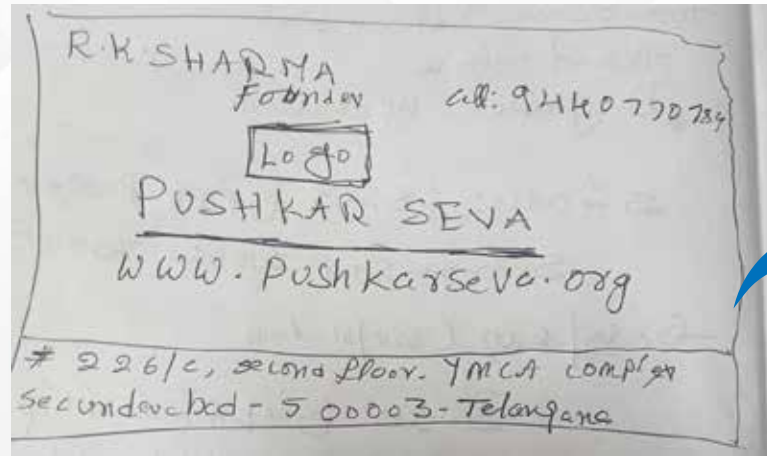 R.K. SHARMA
Founder
Cell: 9440770784
Logo
PUSHKAR SEVA
www.pushkarseva.org
# 226/C, second floor. YMCA complex
Secunderabad - 500003 - Telangana